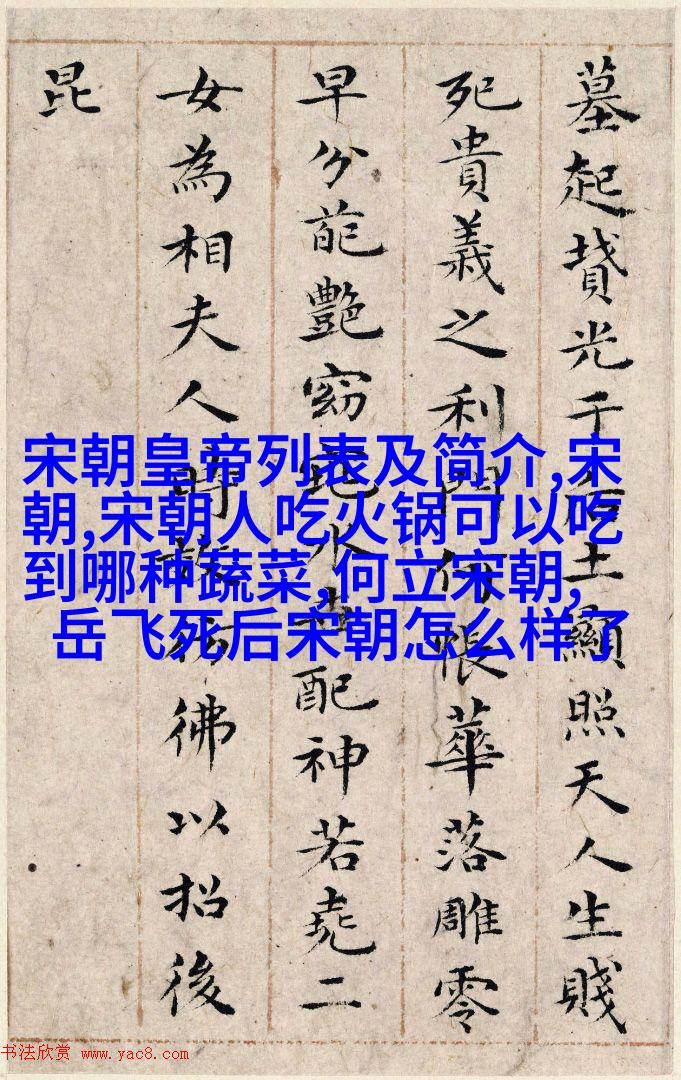 墓起墳光于后土顯照天人生賤
死貴義之利門何悵華落雕零
早分葩艷窈窕永世配神若堯二
女為相夫人時效彷彿以招後
昆
宋朝皇帝列表及简介,宋
朝,宋朝人吃火锅可以吃
到哪种蔬菜,何立宋朝,
岳飞死后宋朝怎么样了
书法欣赏 www.yac8.com